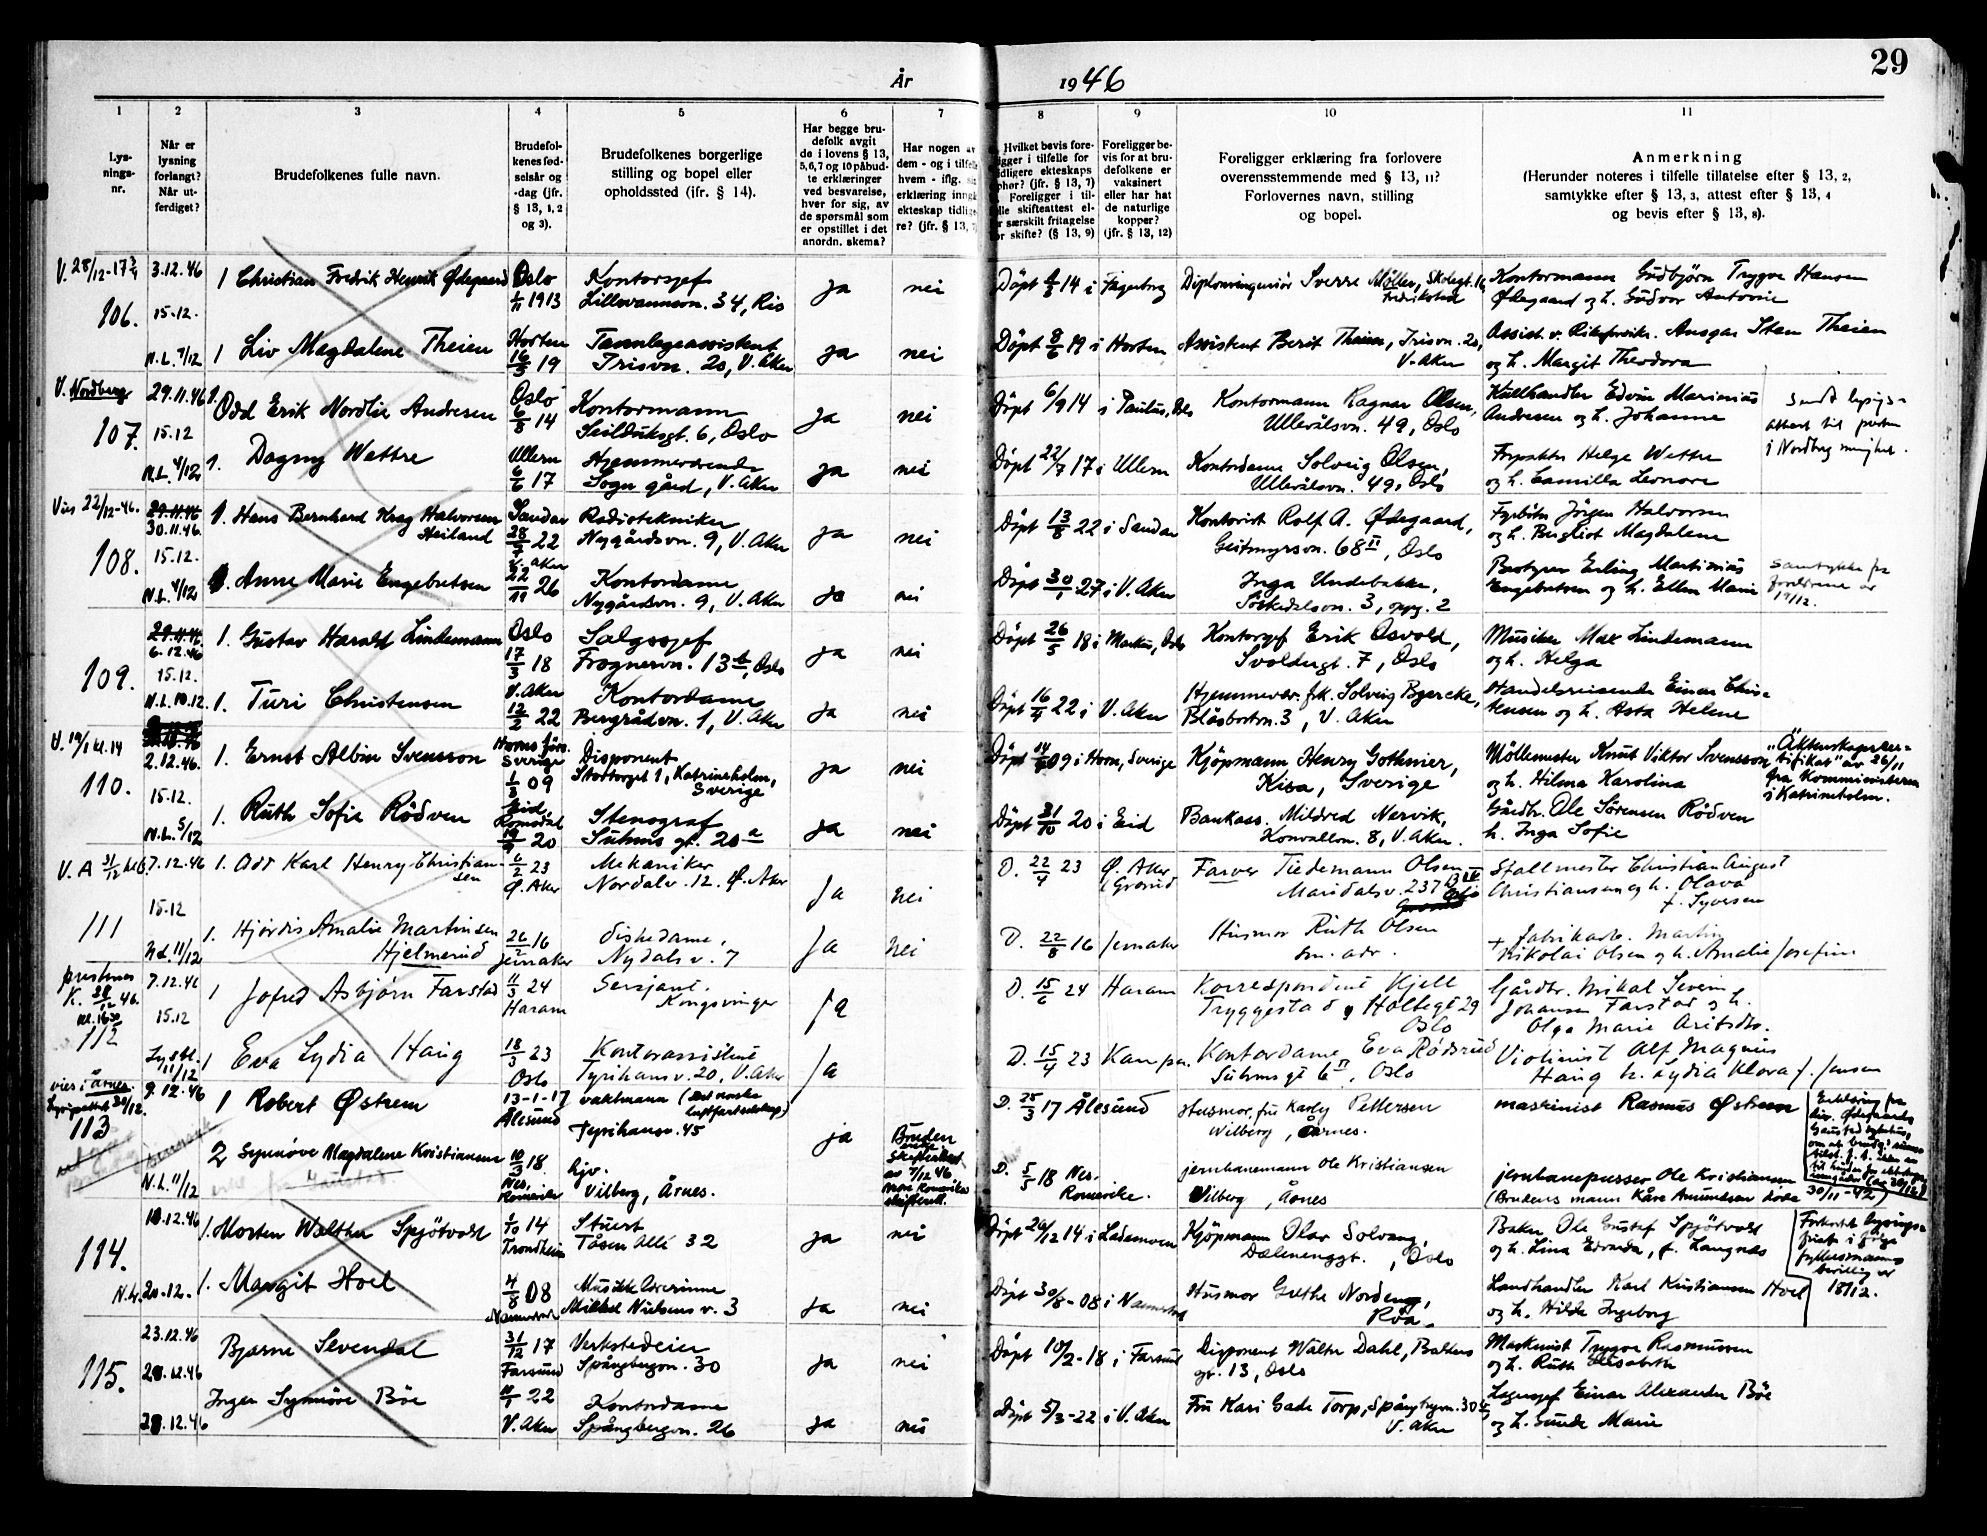 29
År 1946
1
2
3
4
5
6
7
8
9
10
11
Lys-
nings-
nr.
Når er
lysning
forlangt?
Når ut-
ferdiget?
Brudefolkenes fulle navn.
Brudefol-
kenes fød-
selsår og
-dag (jfr.
§ 13, 1, 2
og 3).
Brudefolkenes borgerlige
stilling og bopel eller
opholdssted (jfr. § 14).
Har begge bru-
defolk avgit
de i lovens § 13,
5,6,7 og 10 påbud-
te erklæringer
ved besvarelse,
hver for sig, av
de spørsmål som
er opstillet i det
anordn. skema?
Har nogen av
dem - og i tilfelle
hvem - iflg.
erklæring inngå
ekteskap tidlige
re? (jfr. § 13,
Hvilket bevis fore-
ligger i tilfelle for
tidligere ekteskaps
ophør? (jfr. § 13, 7)
Foreligger i til-
le skifteattest el-
er særskilt fritagelse
or skifte? (§ 13, 9)
Foreligger be-
vis for at bru-
defolkene er
vaksinert
eller har hat
de naturlige
kopper?
(jfr. § 13, 12)
Foreligger erklæring fra forlovere
overensstemmende med § 13, 11?
Forlovernes navn, stilling
og bopel.
Anmerkning
(Herunder noteres i tilfelle tillatelse efter § 13, 2,
samtykke efter § 13, 3, attest efter § 13, 4
og bevis efter § 13, 8).
106.
3.12.46
15.12.
N.L. 7/12
1 Christian Fredrik Henrik Ødegaard
Oslo
1913
Kontorsjef
Lillevannsvn. 34, Ris
ja nei
Döpt 14 i Fagerborg
Diplomingeniør Sverre Möller, Skolegt. 10
Fredrikstad
Kontormann Gudbjørn Trygve Hansen
Ødegaard og h. Gudvor Antonie
1 Liv Magdalene Theien
Horten
16/3 19
Tannlegeassistent
Irisvn. 20, V. Aker
ja nei
Döpt 8/6 19 i Horten
Assistent Berit Theien, Irisvn. 20,
V. Aker
Ansgar Sten Theien
og h. Margit Theodora
V. Nordberg
107.
29.11.46
15.12
N.L. 4/12
1. Odd Erik Nordlie Andresen
Oslo
6/8 14
Kontormann
Seilduksgt. 6, Oslo
ja nei
Döpt 6/9 14 i Paulus, Oslo
Kontormann Ragnar Olsen,
Ullevålsvn. 49, Oslo
Kullhandler Edvin Marinius
Andresen og h. Johanne
1. Dagny Wettre
Ullern
6/6 17
Hjemmeværende
Sogn gård, V. Aker
ja nei
Döpt 22/7 17 i Ullern
Kontordame Solveig Olsen,
Ullevålsvn. 49, Oslo
Forpakter Helge Wettre
og h. Camilla Leonore
Vies 22/12-46.
108.
29.11.46
30.11.46.
15.12.
N.L. 4/12
1. Hans Bernhard Krag Halvorsen
Heiland
Sandar
28/7 22
Radiotekniker
Nygårdsvn. 9, V. Aker
ja nei
Döpt 13/8 22 i Sandar
Kontorist Rolf A. Ødegaard,
Geitmyrsvn. 68 II, Oslo
Fyrbøter Jörgen Halvorsen
og h. Bergliot Magdalene
1. Anne Marie Engebretsen
V. Aker
22/11 26
Kontordame
Nygårdsvn. 9, V. Aker
ja nei
Döpt 30/1 27 i V. Aker
Inga Undebakke,
Sörkedalsvn. 3, oppg. 2
Erling Martinius
Engebretsen og h. Ellen Marie
Samtykke fra
foreldrene av
109.
29.11.46
6.12.46
15.12.
N.L. 10.12
1. Gustav Harald Lindemann
Oslo
17/3 18
Salgssjef
Frognervn. 13 b, Oslo
ja nei
Döpt 26/5 18 i Markus, Oslo
Kontorsjef Erik Osvold,
Svoldergt. 7, Oslo
Musiker Max Lindemann
og h. Helga
1. Turi Christensen
V. Aker
12/2 22
Kontordame
Bergrådvn. 1, V. Aker
ja nei
Döpt 16/4 22 i V. Aker
Hjemmevær. frk. Solveig Bjercke,
Blåsbortvn. 3, V. Aker
Handelsreisende Einar Chris-
tensen og h. Asta Helene
V. 19/1 kl. 14
110.
2.12.46.
15.12.
N.L. 5/12
1. Ernst Albin Svensson
Sverige
09
Disponent
Stortorget 1, Katrineholm,
Sverige
ja nei
Döpt 09 i Horn, Sverige
Kjöpmann Henry Gothnier,
Kisa, Sverige
Möllemester Knut Viktor Svensson
og h. Hilma Karolina
"Äktenskapscer-
tifikat" av 26/11
fra Kommunisteren
i Katrineholm.
1. Ruth Sofie Rödven
Eid,
Romsdal
20
Stenograf
Suhms gt. 20 a
ja nei
Döpt 31/10 20 i Eid
Bankass. Mildred Nervik,
Konvallvn. 8, V. Aker.
Gårdbr. Ole Sörensen Rödven
h. Inga Sofie
111
7.12.46
15.12
N.L. 11/12
1. Odd Karl Henry Christian-
sen
6/2 23
Ø. Aker
Mekaniker
Nordalv. 12. Ø. Aker
Ja nei
D. 22/4 23 Ø. Aker
(Grorud
Farver Tiedemann Olsen
Maridalsv. 237
Stallmester Christian August
Christiansen og h. Olava
f. Syversen
1. Hjördis Amalie Martinsen
Hjelmerud
16
Jevnaker
Diskedame,
Nydalsv. 7
Ja nei
D. 22/8 16 Jevnaker
Husmor Ruth Olsen
sm. adr.
+ Fabrikarb. Martin
Nikolai Olsen og h. Amalie Josefine
prestenes
K. 28/12 46.
112
7.12.46
15.12
11/12
1 Jofred Asbjörn Farstad
11/3 24
Haram
Sersjant.
Kongsvinger
Ja
D. 15/6 24 Haram
Korrespondent Kjell
Tryggestad, Holtegt 29
Oslo
Gårdbr. Mikal Severin
Johansen Farstad og h.
Olga Marie Aritsdtr.
1 Eva Lydia Haug
18/3 23
Oslo
Kontorassistent
Tyrihansv. 20, V. Aker
Ja
D. 15/4 23 Kampen.
Kontordame Eva Rödsrud
Suhmsgt 6 II, Oslo
Violinist Alf Magnus
Haug h. Lydia Klara f. Jensen
vies i Årnes.
113
9.12.46
N.L. 11/12
1 Robert Østrem
13-1-17
Ålesund
vaktmann (Det norske
luftfartselskap)
Tyrihansv. 45
ja
D. 25/3 17 Ålesund
Husmor, fru Karly Pettersen
Vilberg, Årnes.
maskinist Rasmus Østrem
2 Synnöve Magdalene Kristiansen
10/3 18
Nes,
Romerike
hjv.
Vilberg, Årnes.
Bruden
skifteattest
av 7/12 46
Nore Romerike
skifterett.
D. 5/5 18 Nes,
Romerike.
jernbanemann Ole Kristiansen
Vilberg, Årnes
jernbanepusser Ole Kristiansen
(Brudens mann Kåre Amundsen döde 30/11-42)
114.
10.12.46
N.L. 20-12.
1. Morten Walther Spjötvold
1/10 14
Trondheim
Stuert
Tåsen Allé 32
ja nei
Döpt 26/12 14 i Lademoen
Kjöpmann Olav Solvang,
Dælenenggt. , Oslo
Baker Ole Gustaf Spjötvold
og h. Lina Edvarda, f. Langnæs
Forkortet lysings-
frist i følge
fylkesmannens
bevilling av
18/12.
1. Margit Hoel
4/8 08
Musikklærerinne
Mikkel Nielsens v. 3
ja nei
Döpt 30/8-08 i
Husmor Grethe Nordeng,
Röa.
Landhandler Karl Kristiansen Hoel
og h. Hilda Ingeborg
115.
23.12.46
28.12.46
28.12.46
Bjarne Sevendal
31/12 17
Farsund
Verkstedeier
Spångbergvn. 30
ja nei
Döpt 10/2-18 i Farsund
Disponent Walter Dahl, Balders
gt. 13, Oslo
Maskinist Trygve Rasmussen
og h. Ruth Elisabeth
Inger Synnöve Böe
22
V. Aker
Kontordame
Spångbergvn. 26
ja nei
Döpt 5/3-22 i V. Aker
Fru Kari Gade Torp, Spångbergvn. 30
V. Aker
Lagersjef Einar Alexander Böe
og h. Gunda Marie